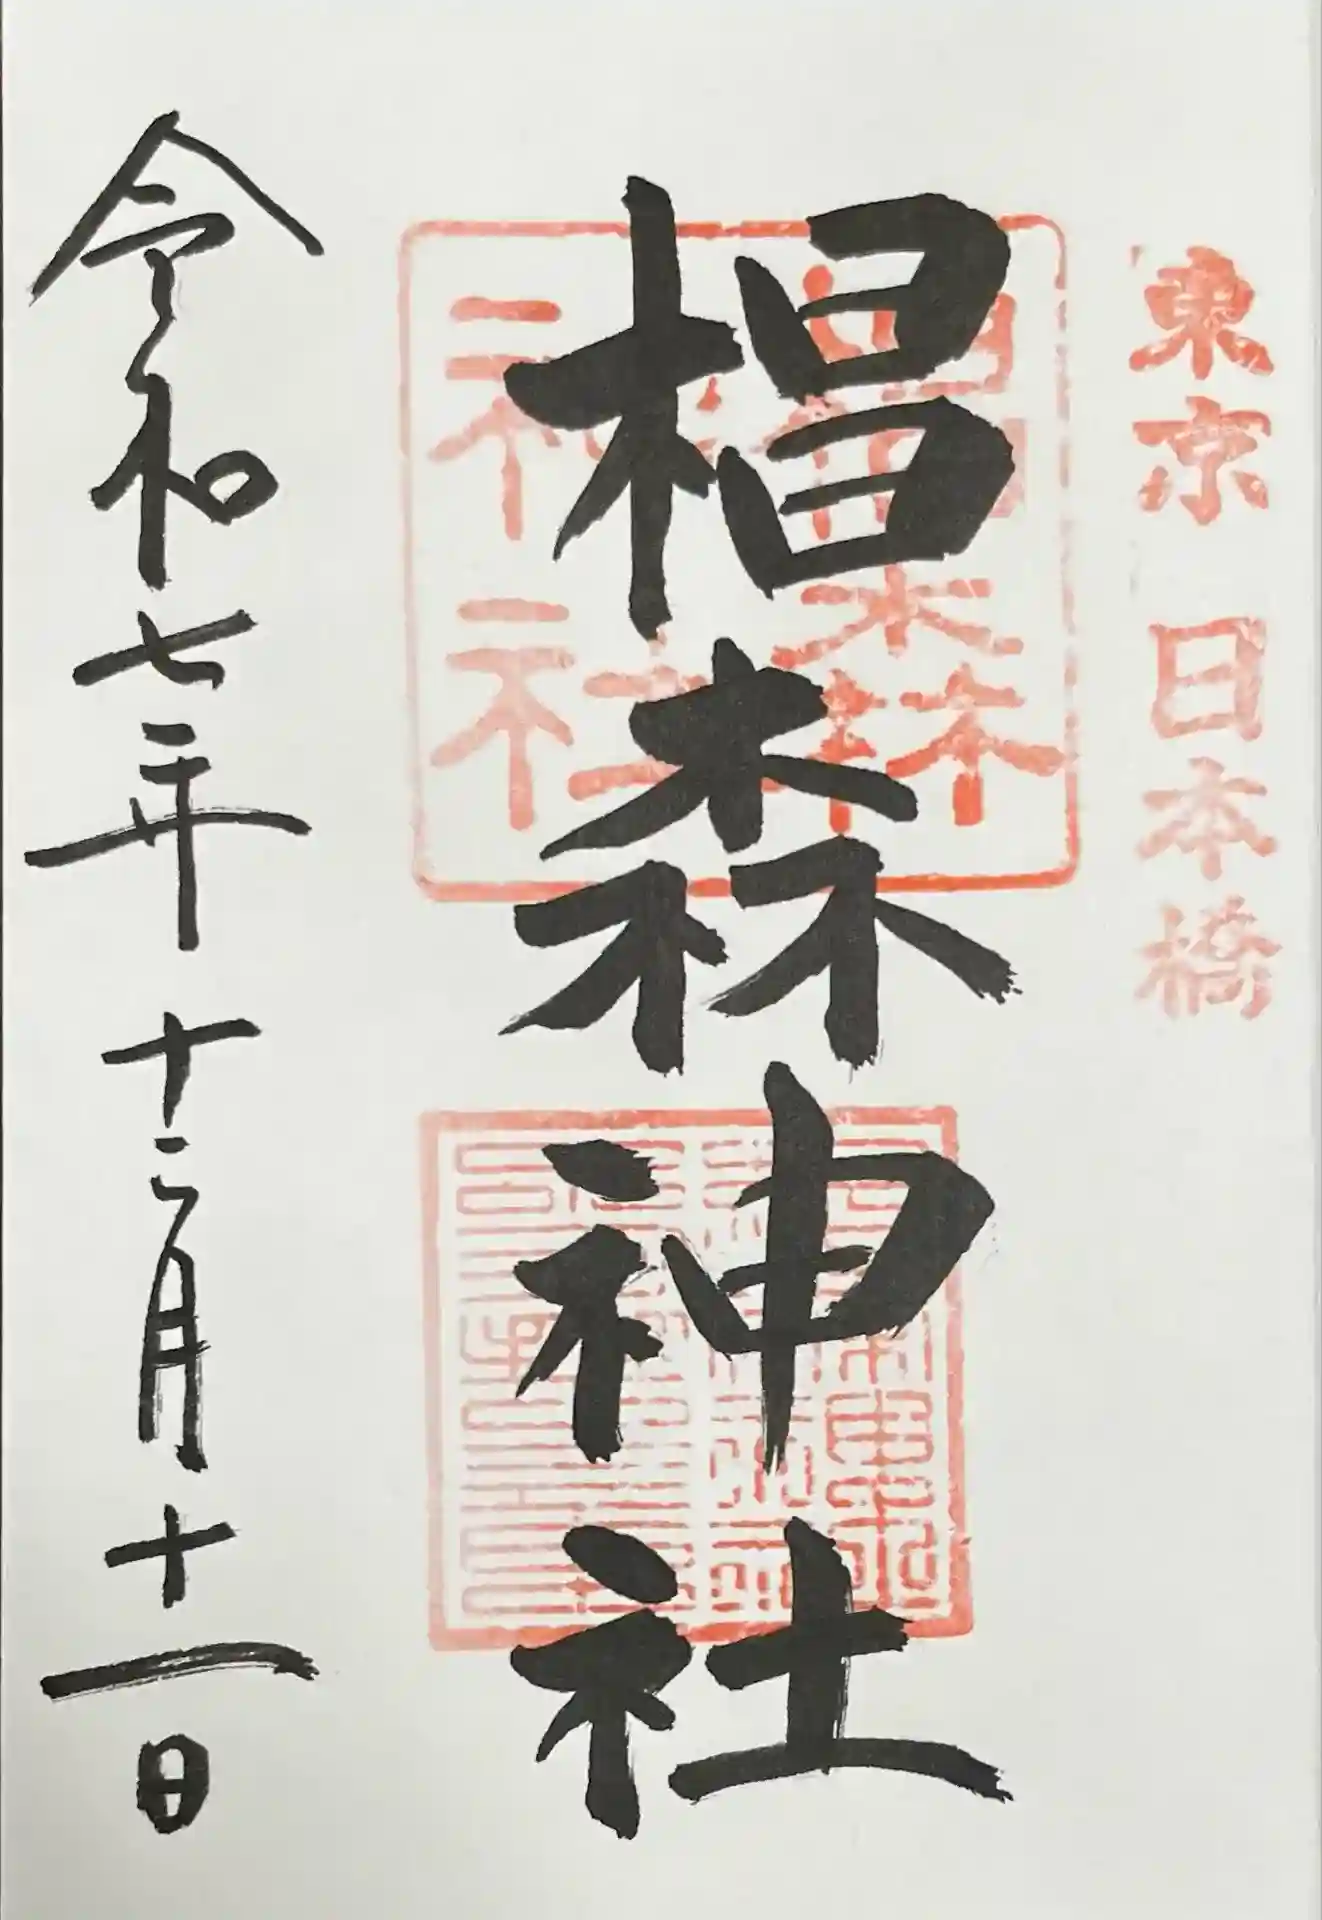 東京 日本橋
椙森神社
椙森神社
令和七年十二月十一日